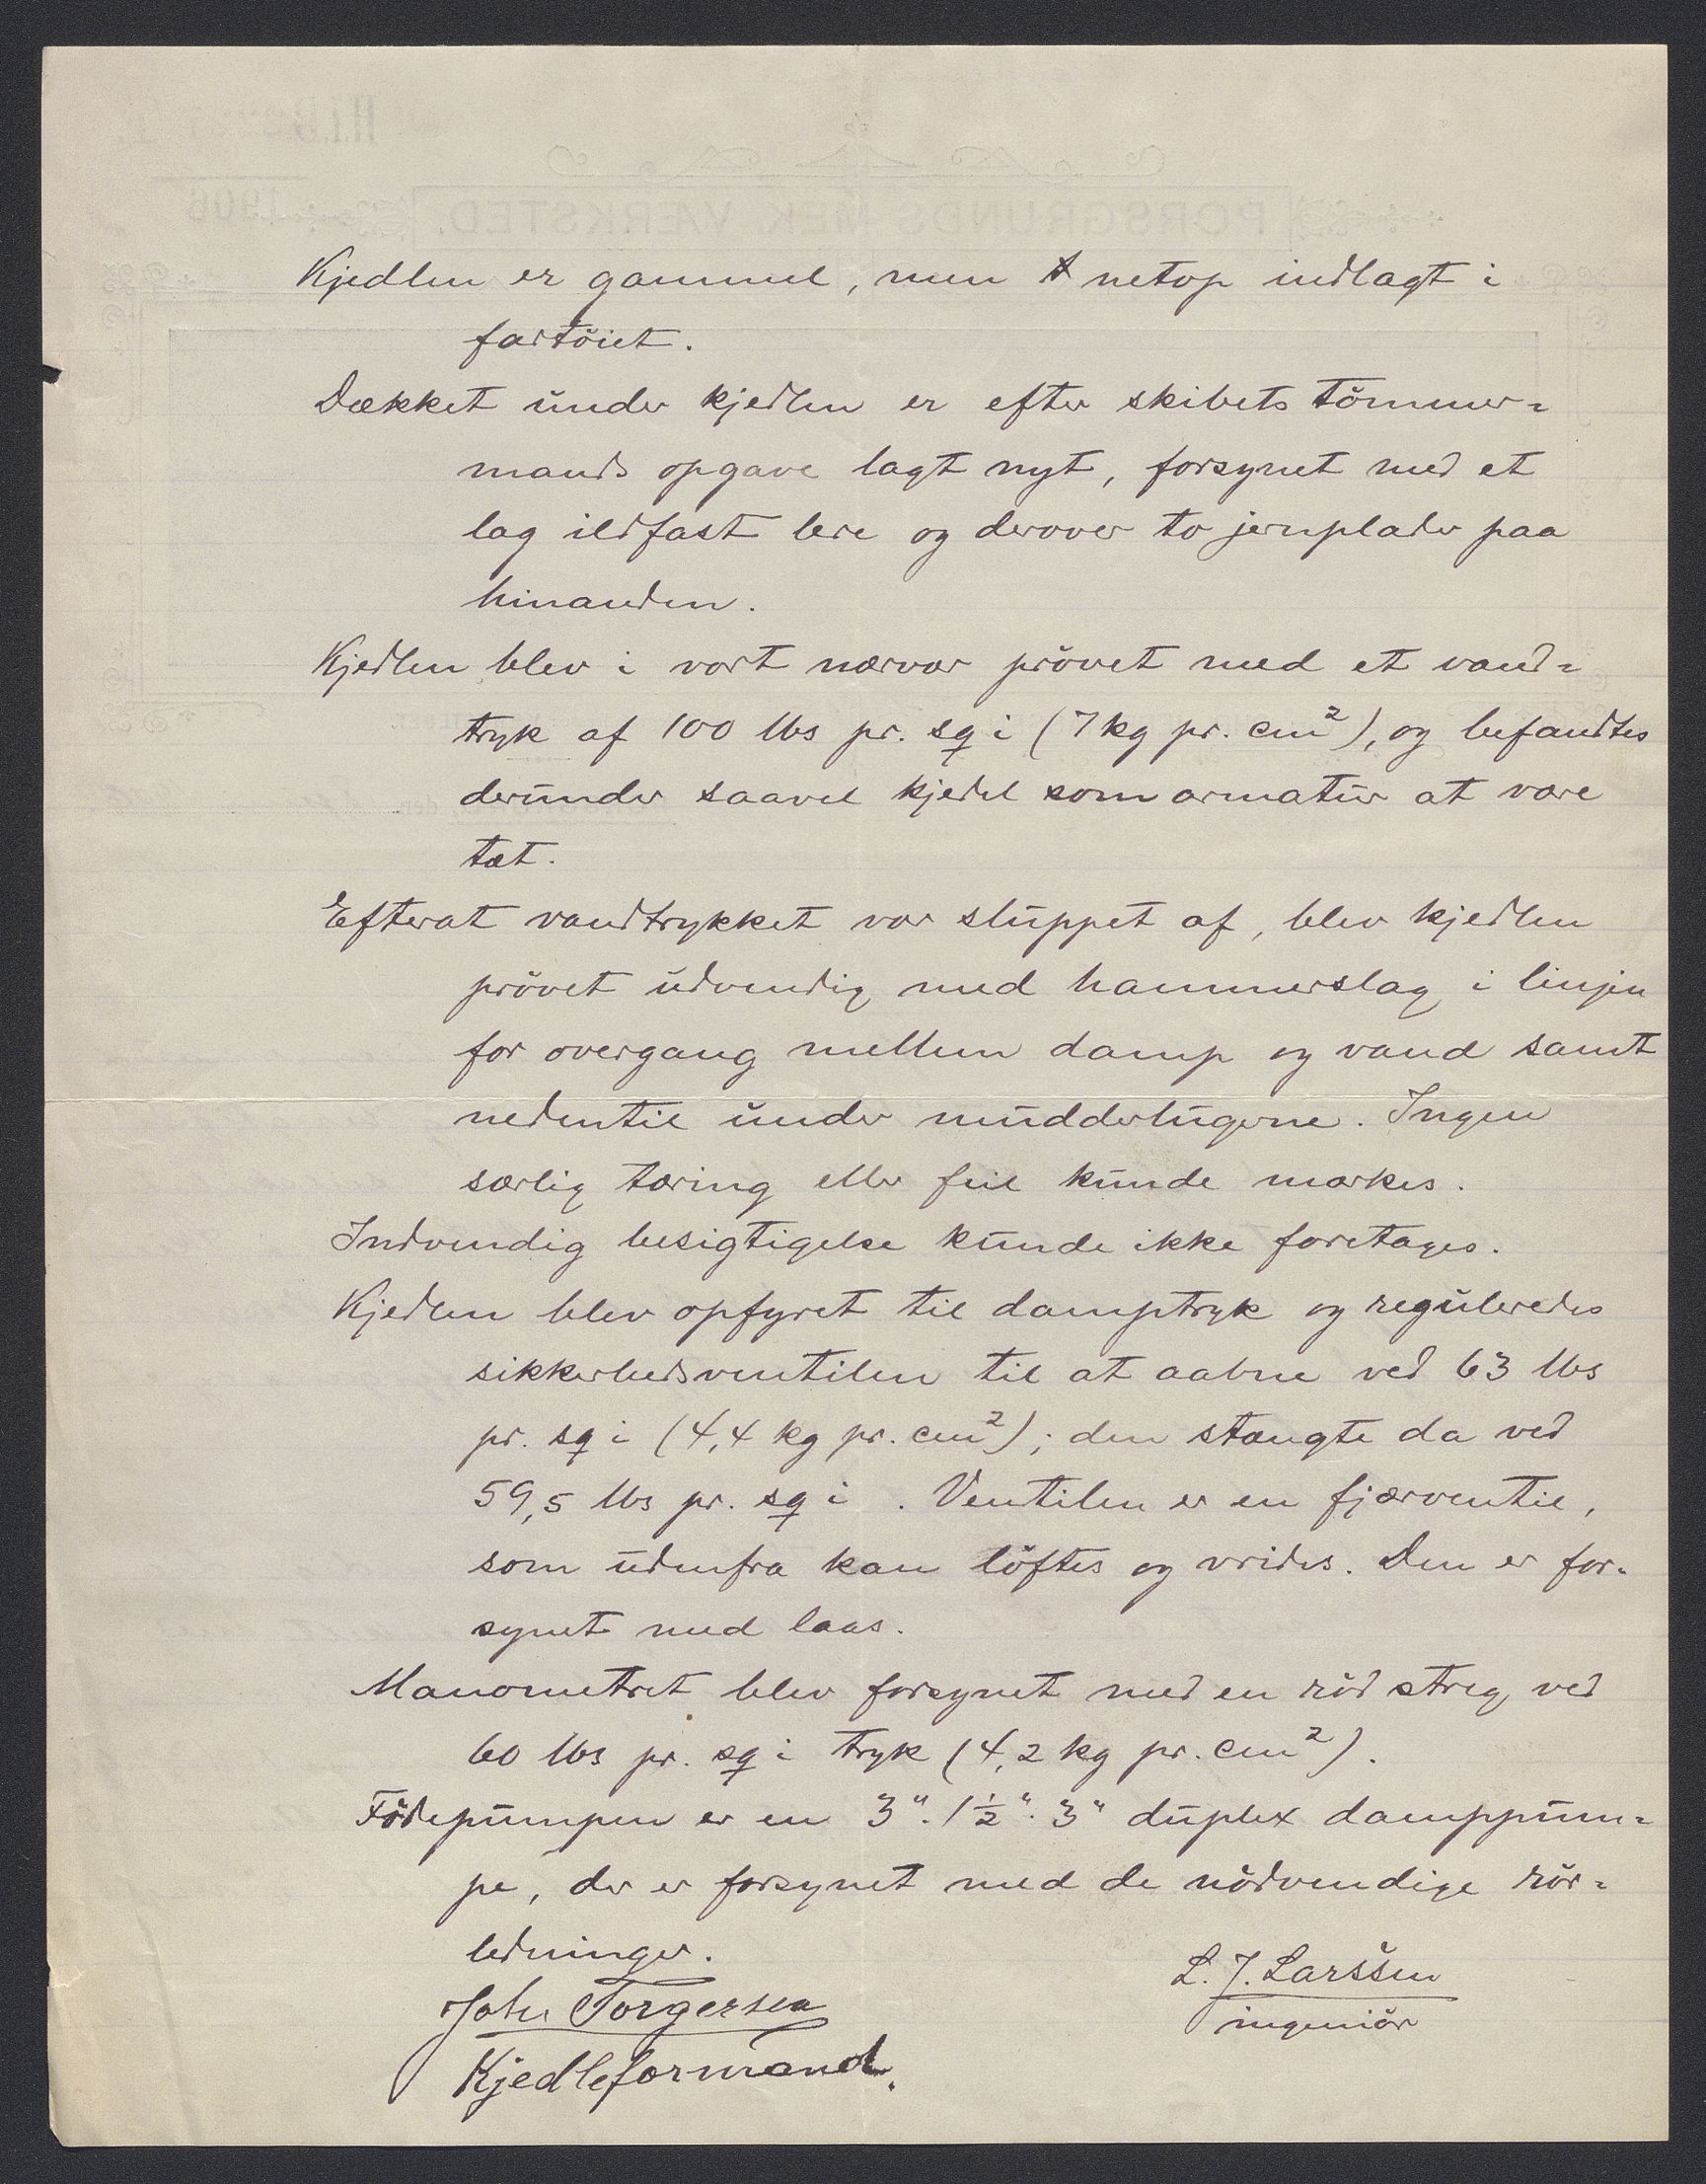 Kjedlen er gammel, men netop indlagt i
fartöiet.
Dækket under kjedlen er efter skibets tömmer=
mands opgave lagt nyt, forsynet med et
lag ildfast lere og derover to jernplader paa
hinanden.
Kjedlen blev i vort nærvær prövet med et vand=
tryk af 100 lbs pr. sq i (7 kg pr. cm²), og befandtes
derunder saavel kjedel som armatur at være
tæt.
Efterat vandtrykket var sluppet af, blev kjedlen
prövet udvendig med hammerslag i linjen
for overgang mellem damp og vand samt
nedentil under mudderlugerne. Ingen
særlig tæring eller feil kunde mærkes.
Indvendig besigtigelse kunde ikke foretages.
Kjedlen blev opfyret til damptryk og reguleredes
sikkerhedsventilen til at aabne ved 63 lbs
pr. sq i (4,4 kg pr. cm²); den stængte da ved
59,5 lbs pr. sq i . Ventilen er en fjærventil,
som udenfra kan löftes og vrides. Den er for=
synet med laas.
Manometret blev forsynet med en röd streg ved
60 lbs pr. sq i tryk (4,2 kg pr. cm²).
Födepumpen er en 3". 1½". 3" duplex damppum=
pe, der er forsynet med de nödvendige rör=
ledninger.
L. J. Larssen
ingeniör
Joh. Torgersen
Kjedleformand.